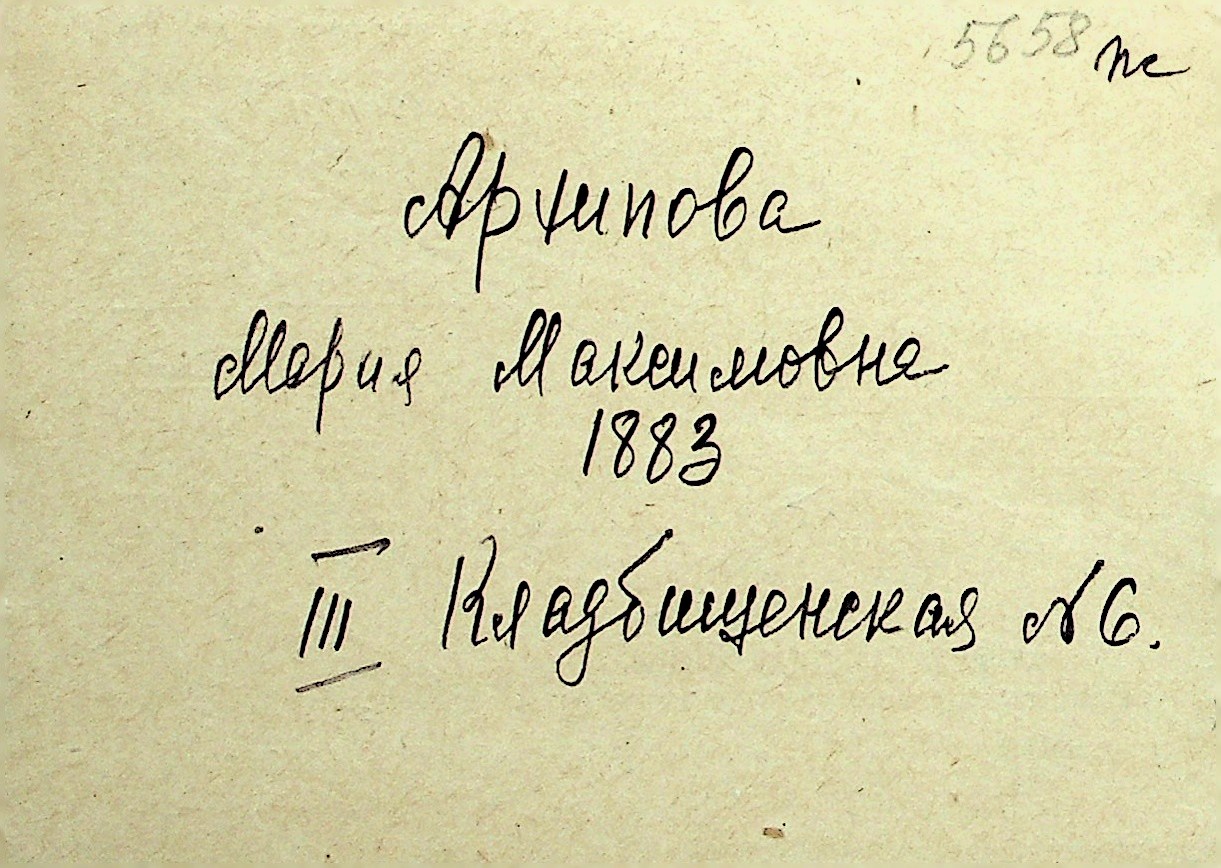 5658 пс
Архипова
Мария Максимовна
1883
III Кладбищенская №6.